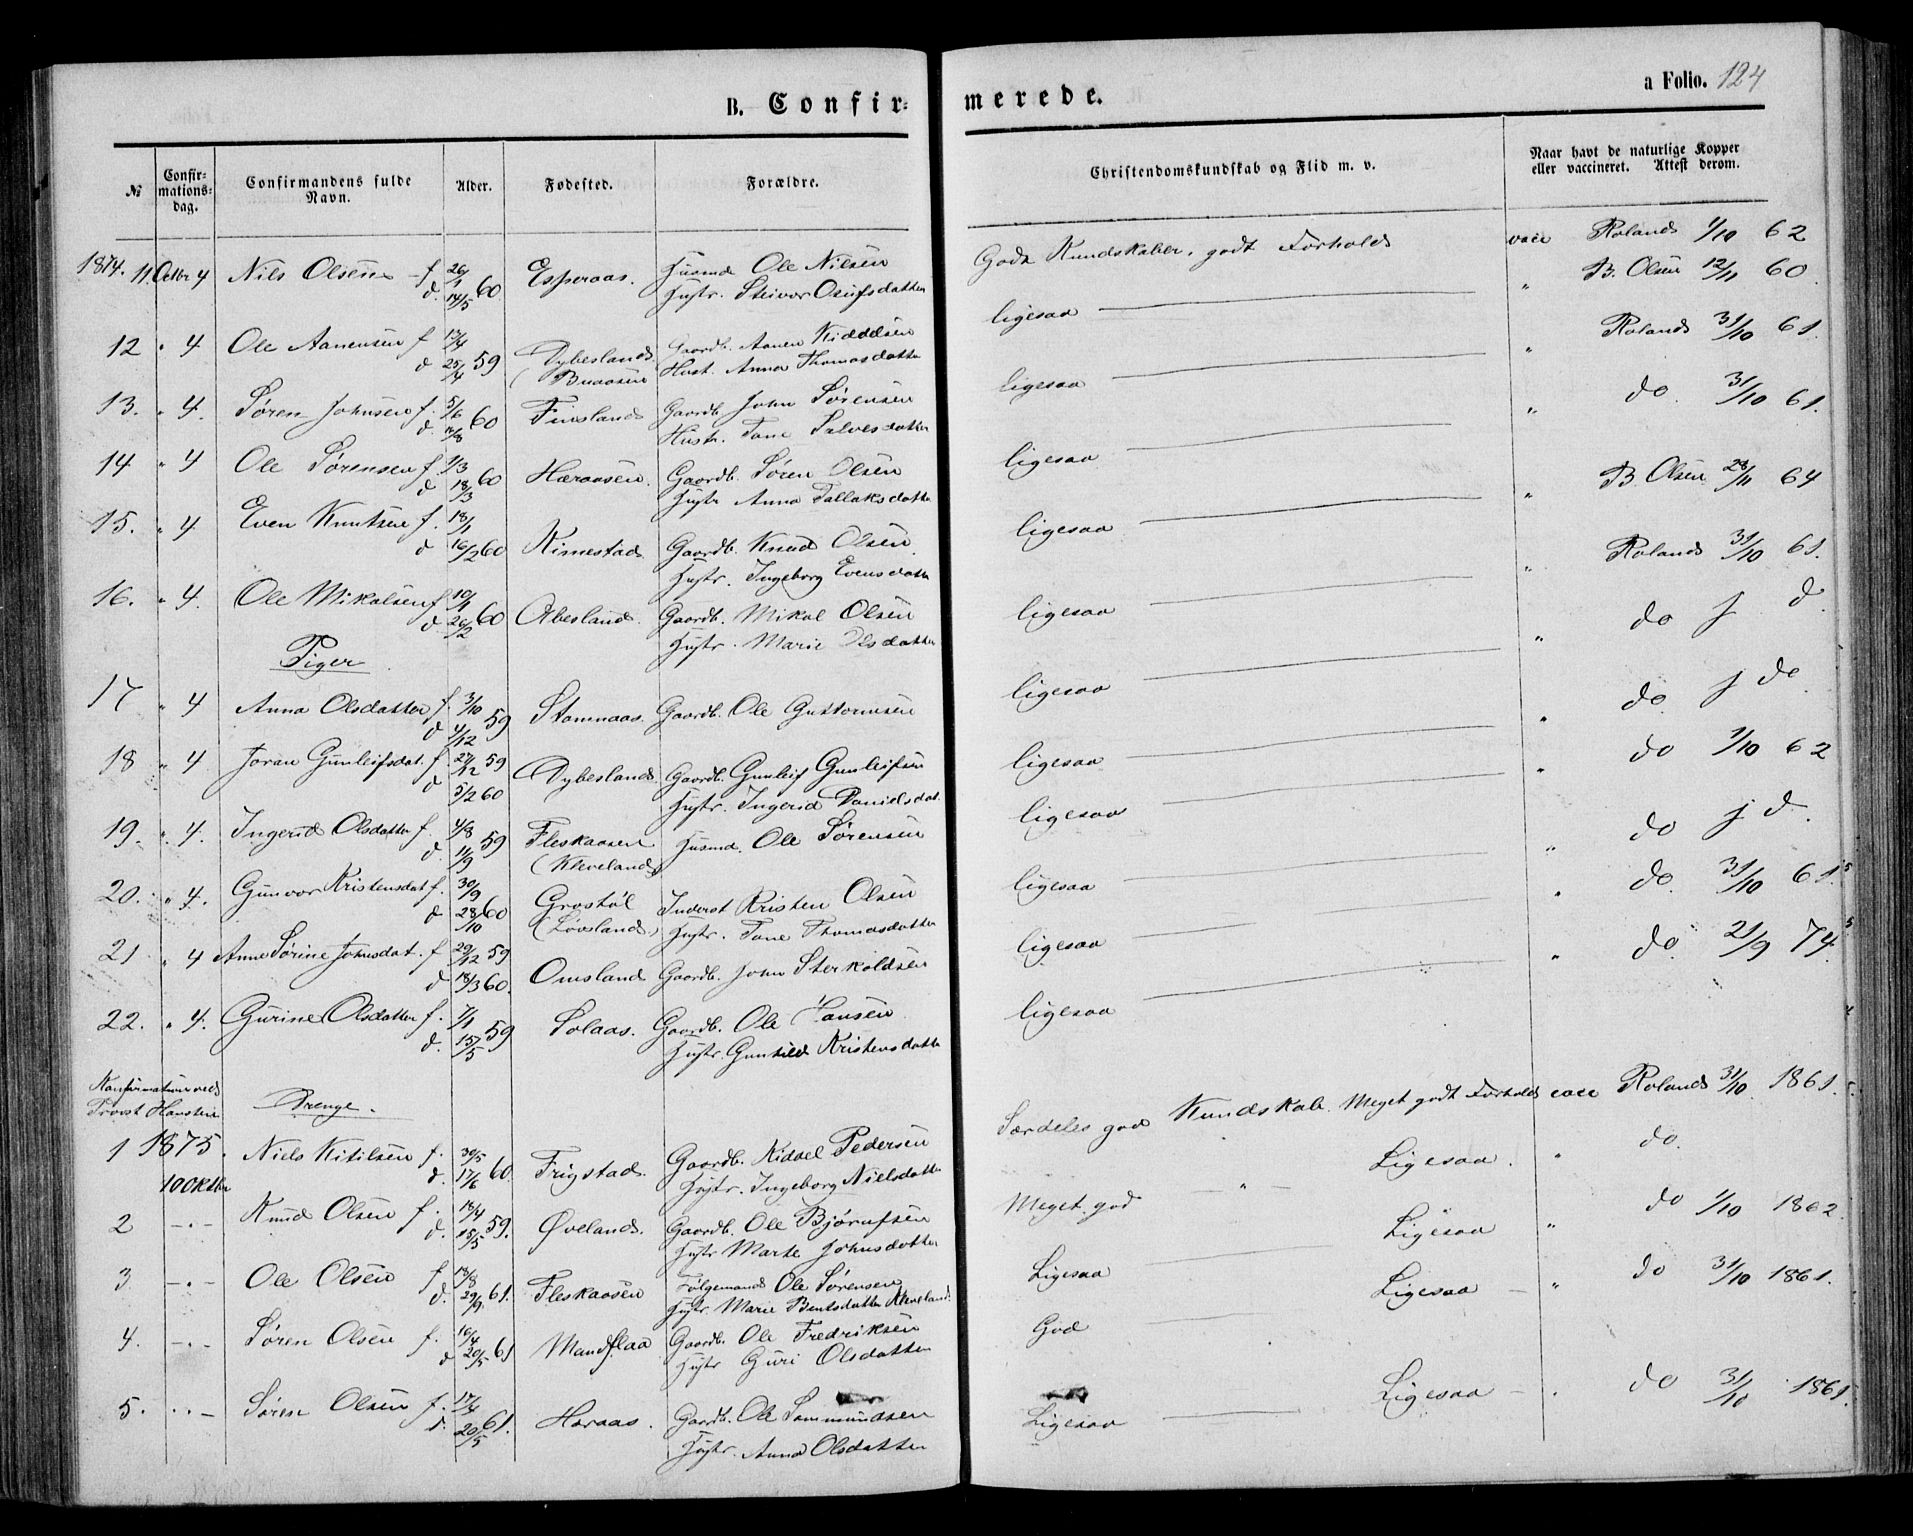 B. Confir=
merede.
a Folio. 124
№ Confir=mations=dag. Confirmandens fulde Navn. Alder. Fødested. Forældre. Christendomskundskab og Flid m. v. Naar havt de naturlige Kopper eller vaccineret. Attest derom.
1874. 11. Octbr 4 Nils Olsen f. 26/1 60 Esperaas. Husmd Ole Nilsen Gode Kundskaber, godt Forhold vacc Roland 1/10 62
d. 14/5 Hustr. Steivor Osufsdatter
12 " 4 Ole Aanensen f 13/4 59 Dybesland Gaardb. Aanen Kiddelsen ligesaa " B. Olsen 12/11 60
d 25/4 (Buaasen Hust. Anna Thomasdatter
13. " 4. Søren Johnsen f. 5/6 60 Finsland Gaardb. John Sørensen ligesaa " Roland 31/10 61.
d. /8 Hustr. Tone Salvesdatter
14 " 4 Ole Sørensen f. 1/3 60 Haraasen. Gaardb. Søren Olsen ligesaa " do. 31/10 61.
d 18/3 Hustr Anna Tallaksdatter
15. " 4 Even Knutsen f. 18/1 Kimestad. Gaardb. Knud Olsen ligesaa " B Olsen 28/11 64
d 16/2 60 Hustr. Ingeborg Evensdatter
16. " 4. Ole Mikalsen f 10/1 60 Abesland. Gaardb. Mikal Olsen ligesaa " Roland 31/10 61.
d. 26/2 Hustr. Marie Olsdatter
Piger
17 " 4 Anna Olsdatter f. 3/10 59 Stamnaas. Gaardb. Ole Guttormsen ligesaa " do d.
d 4/12
18 " 4 Joran Gunleifsdat. f. 27/12 59 Dybesland. Gaardb. Gunleif Gunleifsen ligesaa " do. do
d 5/2 60 Hustr. Ingerid Danielsdat.
19. " 4. Ingerid Olsdatter f. 4/8 59 Fleskaasen Husmd. Ole Sørensen ligesaa " do 1/10 62
d. 11/9 (Kleveland)
20. " 4. Gunvor Kristensdat f. 30/9 60 Grostøl Inderst Kristen Olsen ligesaa " do d.
d 28/10 (Løvsland) Hustr. Tone Thomasdatter
21 " 4 Anne Sørine Johnsdat. f 29/12 59 Omsland Gaardb. John Sterkoldsen ligesaa " do. 31/10 61.
d 18/3 60.
22. " 4. Gurine Olsdatter f. 7/1 59 Solaas. Gaardb. Ole Hansen ligesaa " do. 21/9 74.
d. 15/5 Hustr. Gunhild Kristensdatter
Konfirmation ved
Provst Hansteen Drenge.
1 1875. Niels Kitilsen f. 30/5 60. Frigstad. Gaardb. Kiddel Pedersen Særdeles god Kundskab. Meget godt Forhold vacc Roland 31/10 1861.
10 Oktbr d. 17/6 Hustr. Ingeborg Nielsdatter
2 — " — Knud Olsen f. 18/4 59. Øveland. Gaardb. Ole Bjørufsen Meget god — " — Ligesaa. " do.
d. 15/5 Hustr Marte Johnsdatter
3 — " — Ole Olsen f 18/8 61. Fleskaasen Følgemand Ole Sørensen Ligesaa Ligesaa " do 1/10 1862.
d. 29/9 Hustr. Marie Bentsdatter Kleveland.
4. — " — Søren Olsen f. 16/4 61 Mandflaa Gaardb. Ole Fredriksen God Ligesaa — " do 31/10 1861.
d 20/5 Hustr Guri Olsdatter
5. " — Søren Olsen f. 17/4 61. Haraas. Gaardb. Ole Sammundsen Ligesaa Ligesaa — " do 31/10 1861.
d. 20/5 Hustr. Anna Olsdatter